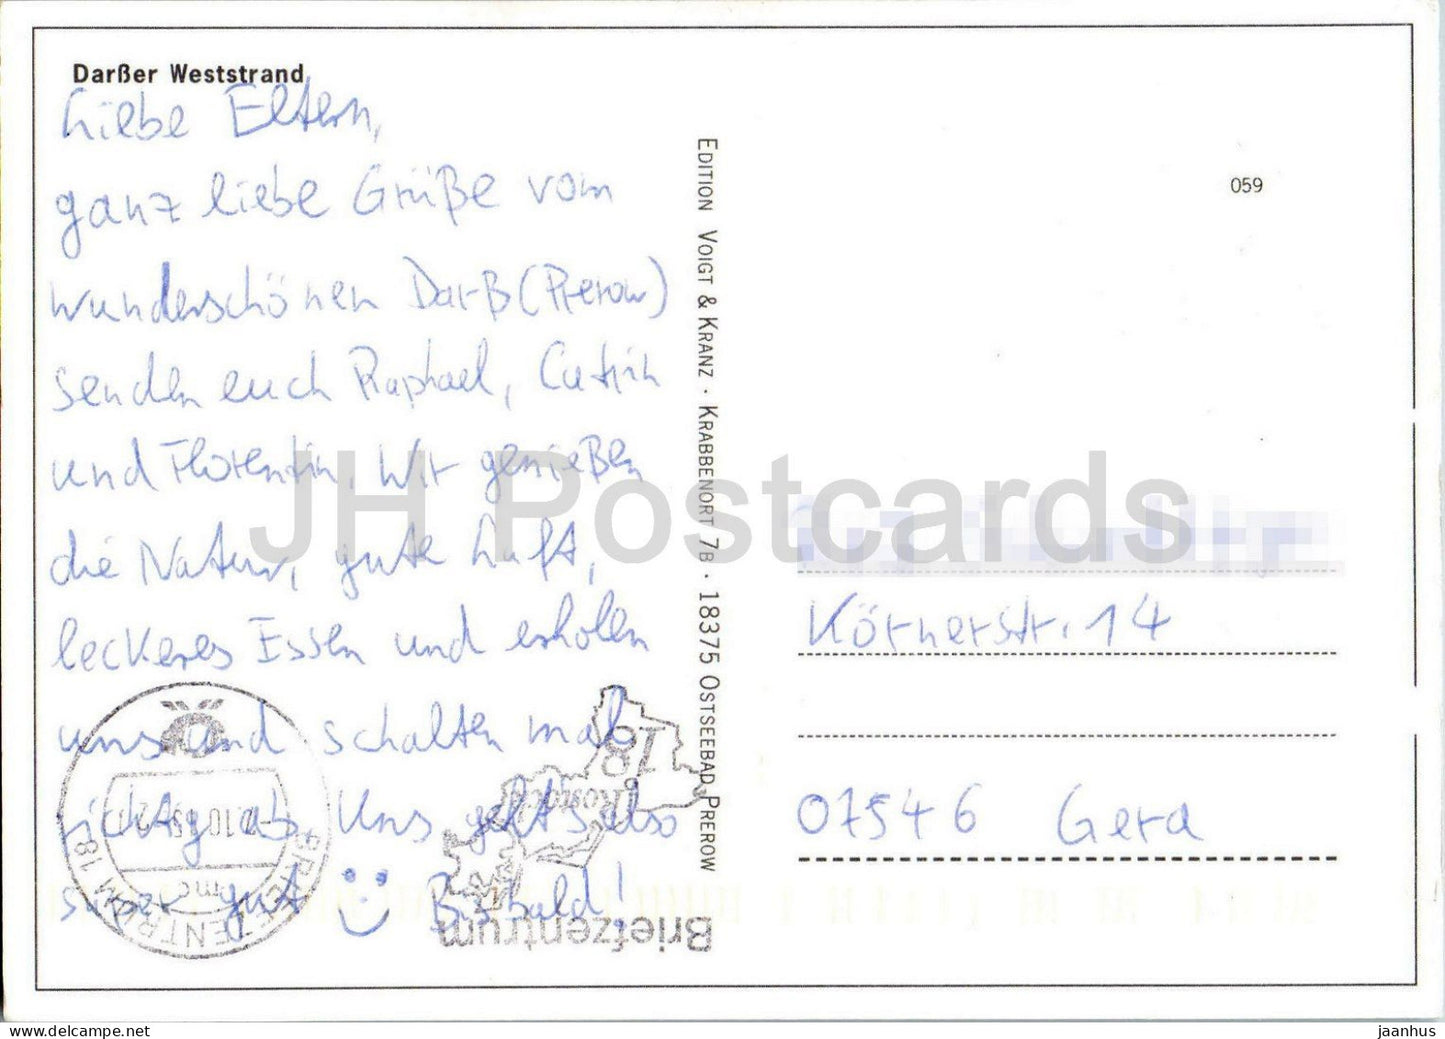 Darßer Weststrand
Liebe Eltern,
ganz liebe Grüße vom
wunderschönen Darß (Prerow)
senden euch Raphael, Catrin
und Florentin, Wir genießen
die Natur, gute Luft,
leckeres Essen und erholen
uns und schalten mal
richtig ab. Uns geht's also
super gut Bis bald!
EDITION VOIGT & KRANZ · KRABBENORT 7B · 18375 OSTSEEBAD PREROW
059
Körnerstr. 14
07546 Gera
BRIEFZENTRUM 18
18
Rostock
Briefzentrum
JH Postcards
www.delcampe.net
jaanhus